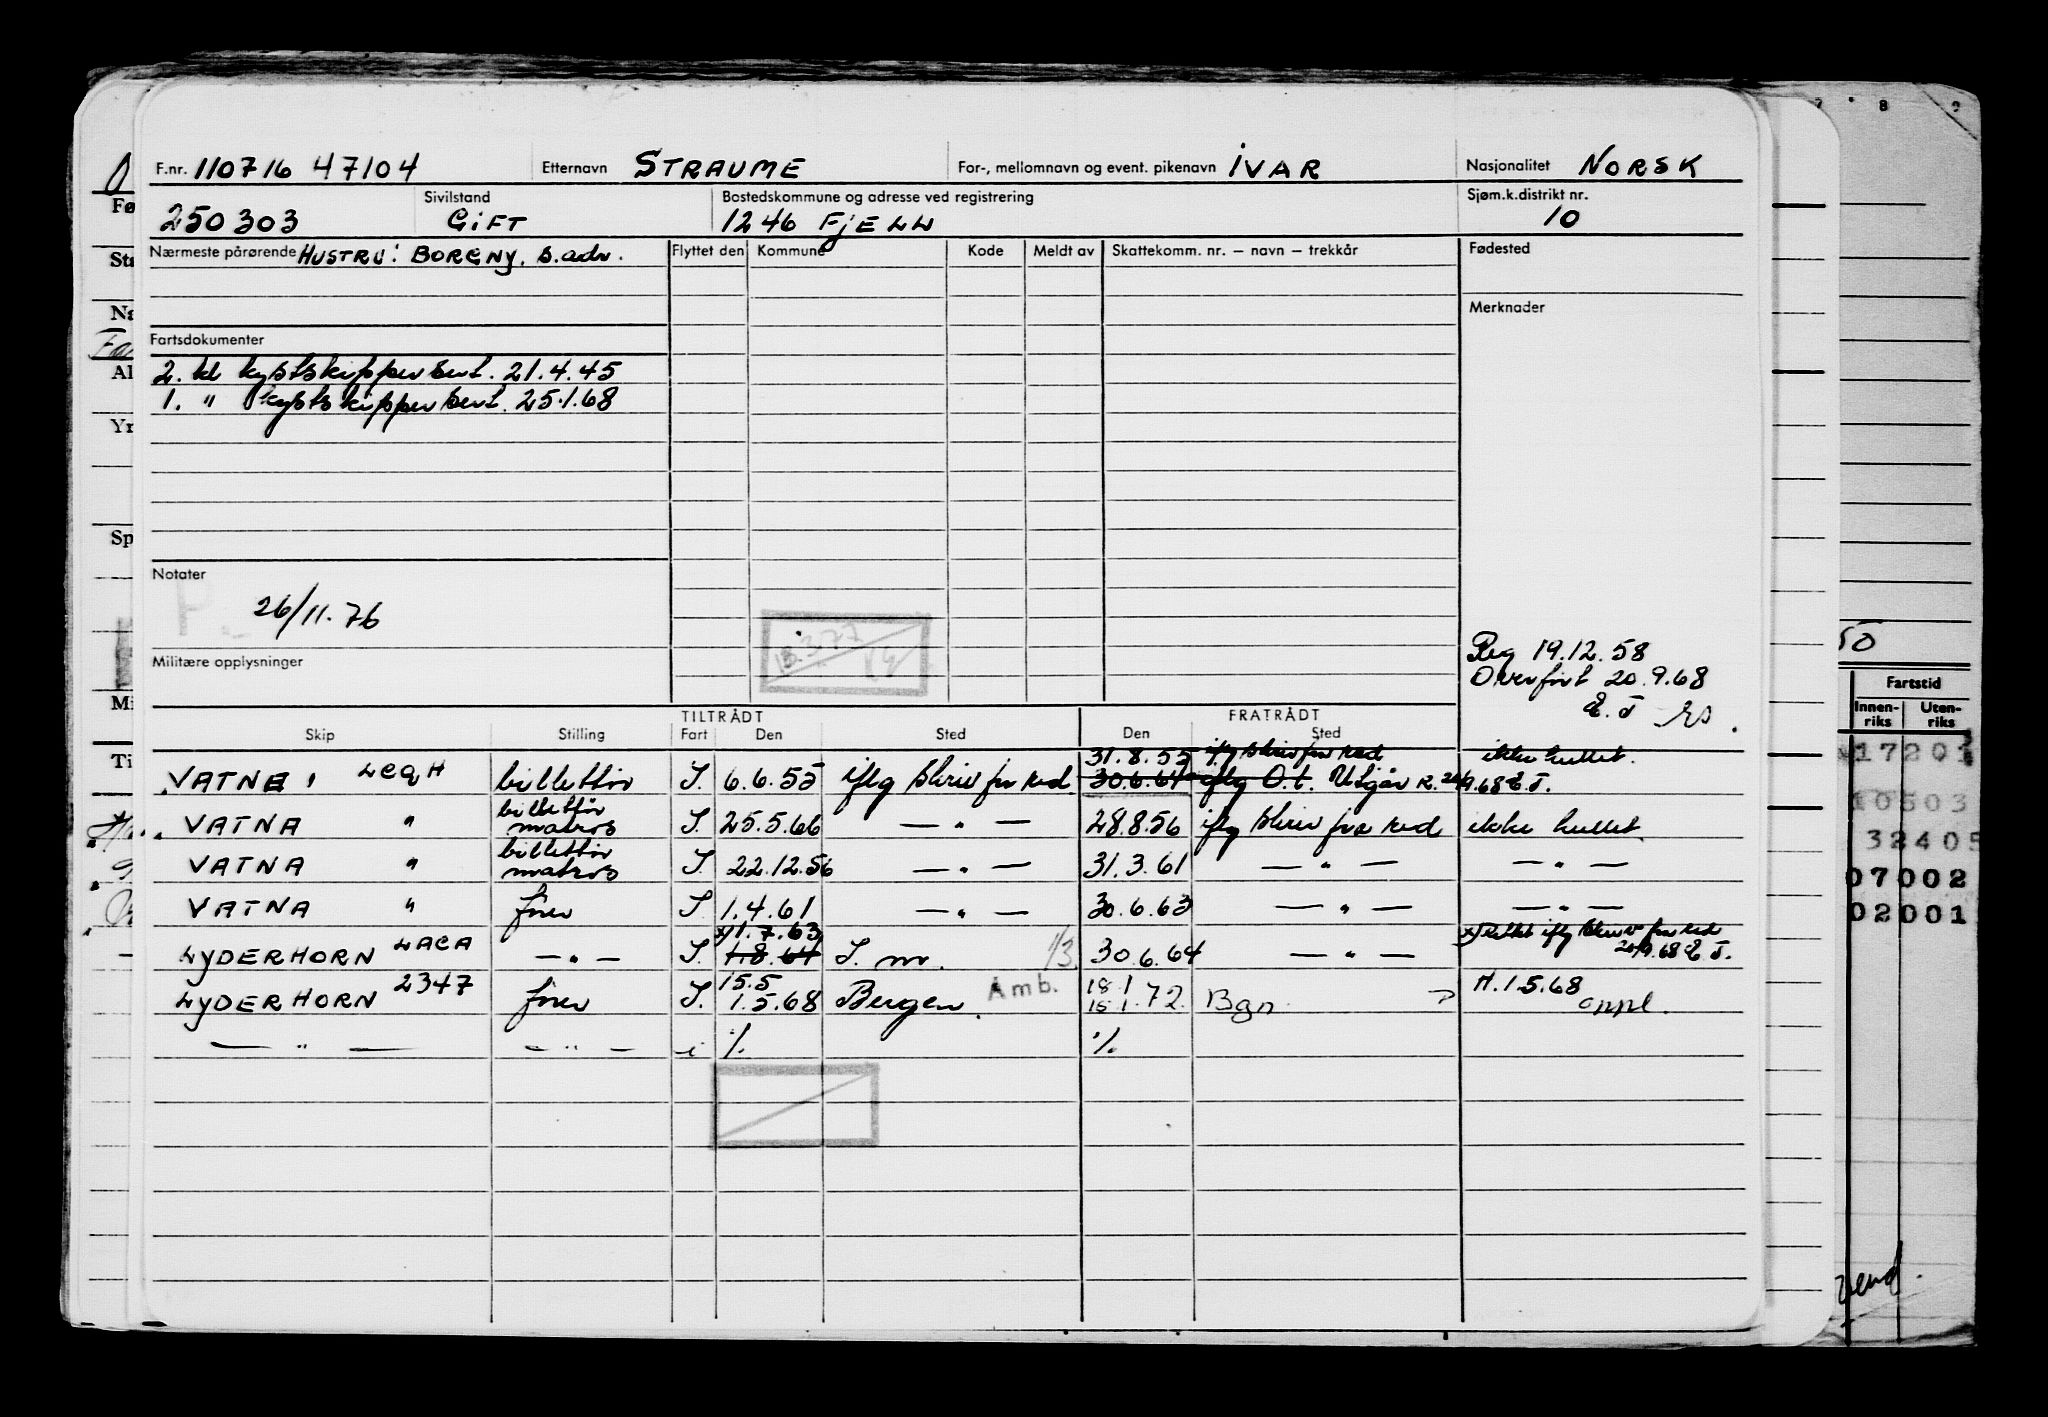 F.nr. 110716 47104 Etternavn STRAUME For-, mellomnavn og event. pikenavn IVAR Nasjonalitet NORSK
250303 Sivilstand GIFT Bostedskommune og adresse ved registrering 1246 FJELL Sjøm.k.distrikt nr. 10
Nærmeste pårørende HUSTRU: BORGNY, s. adr. Flyttet den Kommune Kode Meldt av Skattekomm. nr. – navn – trekkår Fødested
Merknader
Fartsdokumenter
2. kl kystskippersert. 21.4.45
1. " kystskippersert. 25.1.68
Notater
26/11.76
Militære opplysninger
Reg 19.12.58
Overført 20.9.68
E. T
TILTRÅDT FRATRÅDT
Skip Stilling Fart Den Sted Den Sted
VATNE, LEQH billettør I. 6.6.55 iflg skriv fra red 31.8.55 iflg skriv fra red ikke hullet.
30.6.64 iflg O.t. Utgår R. 20/9.68 E.T.
VATNA " billettør matros I. 25.5.66 — " — 28.8.56 iflg skriv fra red ikke hullet
VATNA " billettør matros I. 22.12.56 — " — 31.3.61 — " — — " —
VATNA " fører I 1.4.61 — " — 30.6.63 — " — — " —
LYDERHORN LAEA — " — I. x) 1.7.63 1.8.64 I. m. 1/3 30.6.64 — " — x) Rettet iflg skriv fra red 20/9.68 E.T.
LYDERHORN 2347 fører I. 15.5 1.5.68 Bergen. Amb. 18.1 15.1.72. Bgn H.1.5.68 oppl.
— " — — " — i /. /.
Fartstid
Innen-riks Uten-riks
17201
10503
32405
07002
02001